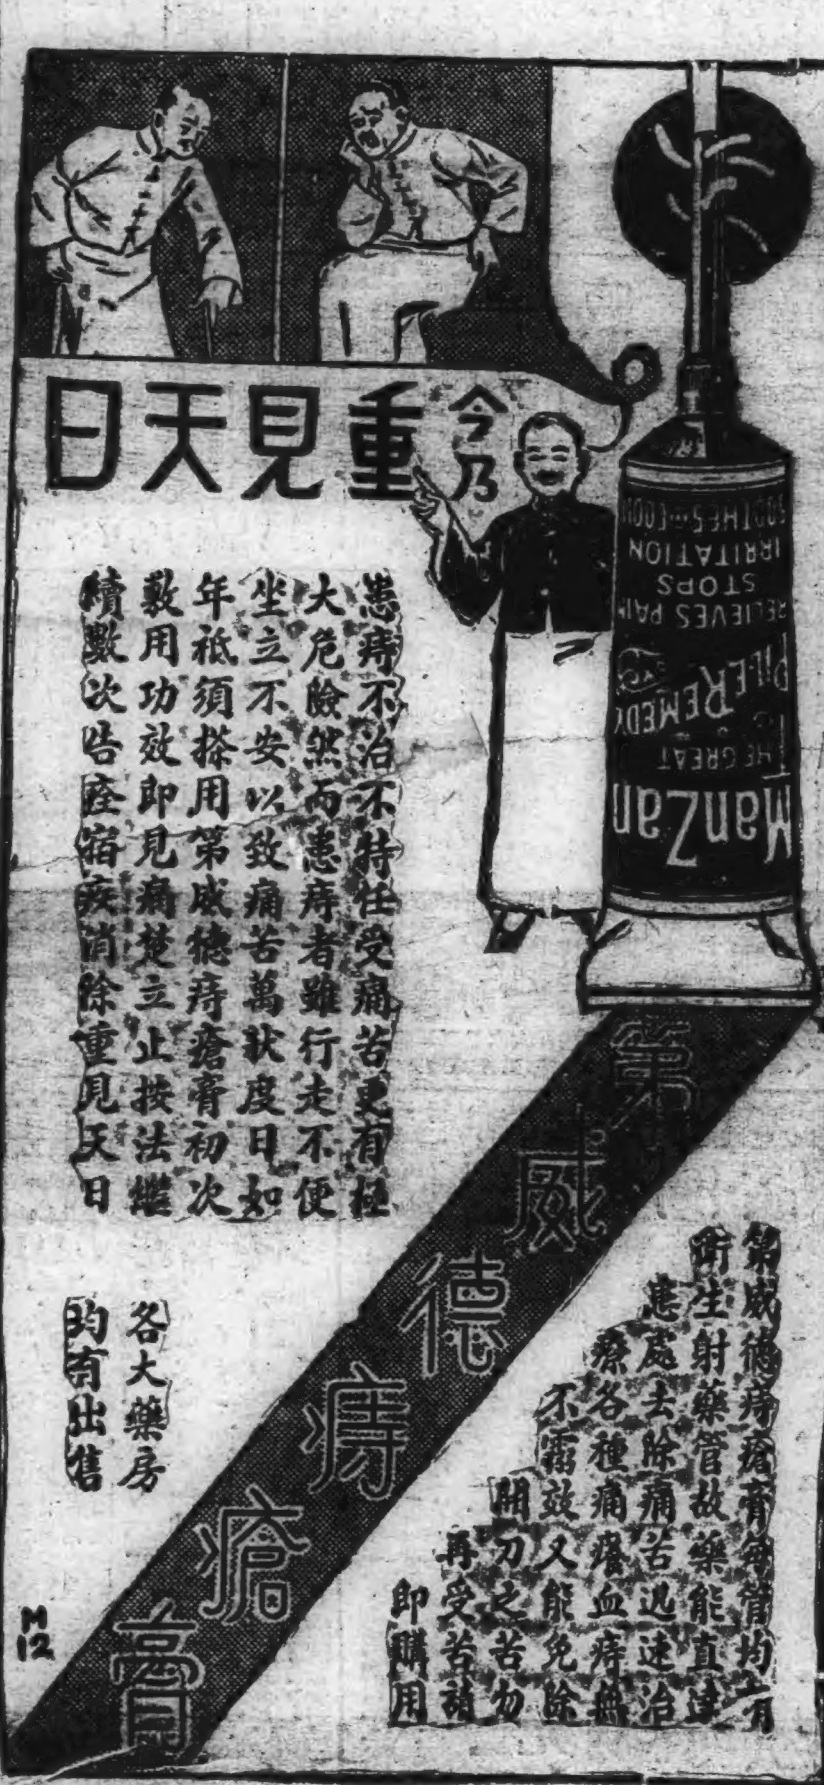 今乃
重見天日
ManZan
THE GREAT
PILE REMEDY
RELIEVES PAIN
STOPS
IRRITATION
SOOTHES COOLS
患痔不治不特任受痛苦更有極
大危險然而患痔者雖行走不便
坐立不安以致痛苦萬狀度日如
年祗須搽用第威德痔瘡膏初次
敷用功效即見痛楚立止按法繼
續數次告痊宿疾消除重見天日
第威德痔瘡膏
第威德痔瘡膏每管均有
衛生射藥管故藥能直達
患處去除痛苦迅速治
療各種痛癢血痔無
不靈效又能免除
開刀之苦勿
再受苦請
即購用
各大藥房
均有出售
M
12